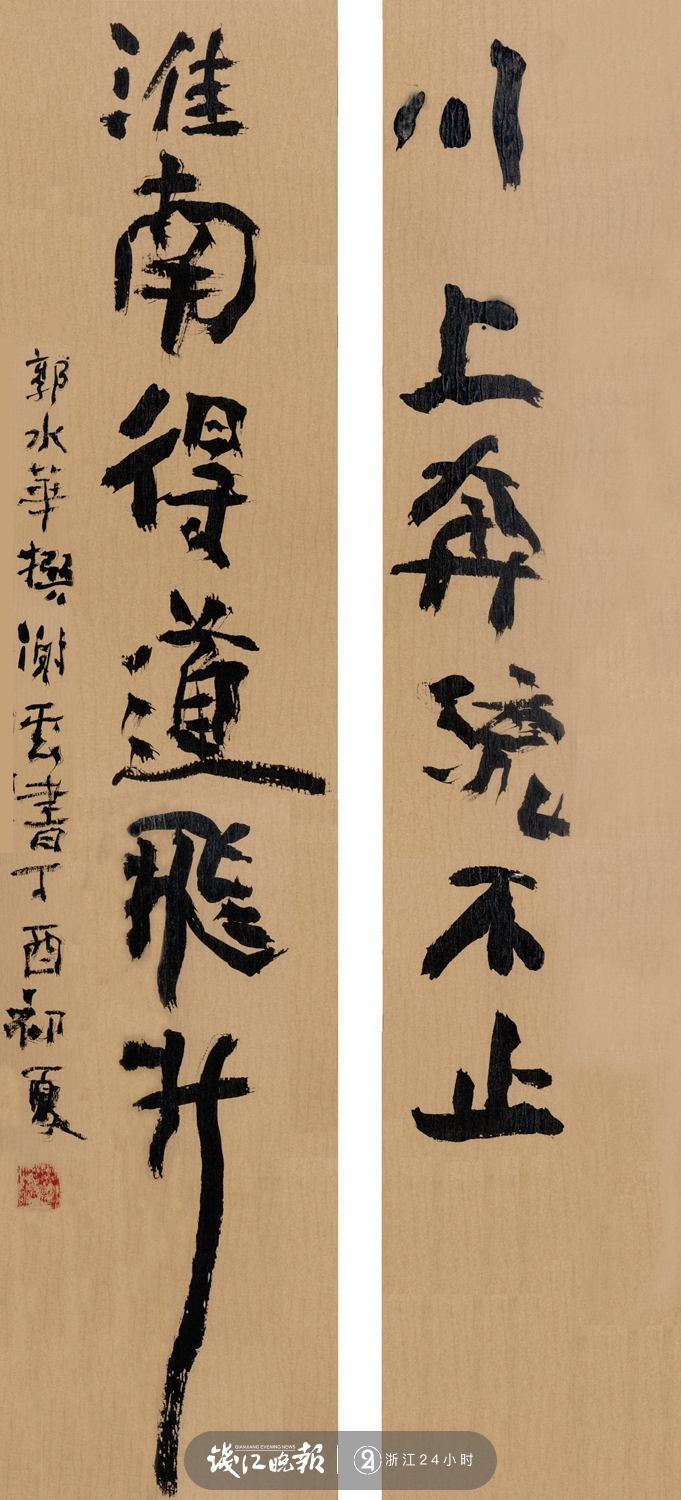 川上奔流不止
淮南得道飛升
郭水華撰謝雲書丁酉初夏
錢江晚報
QIANJIANG EVENING NEWS
浙江24小时